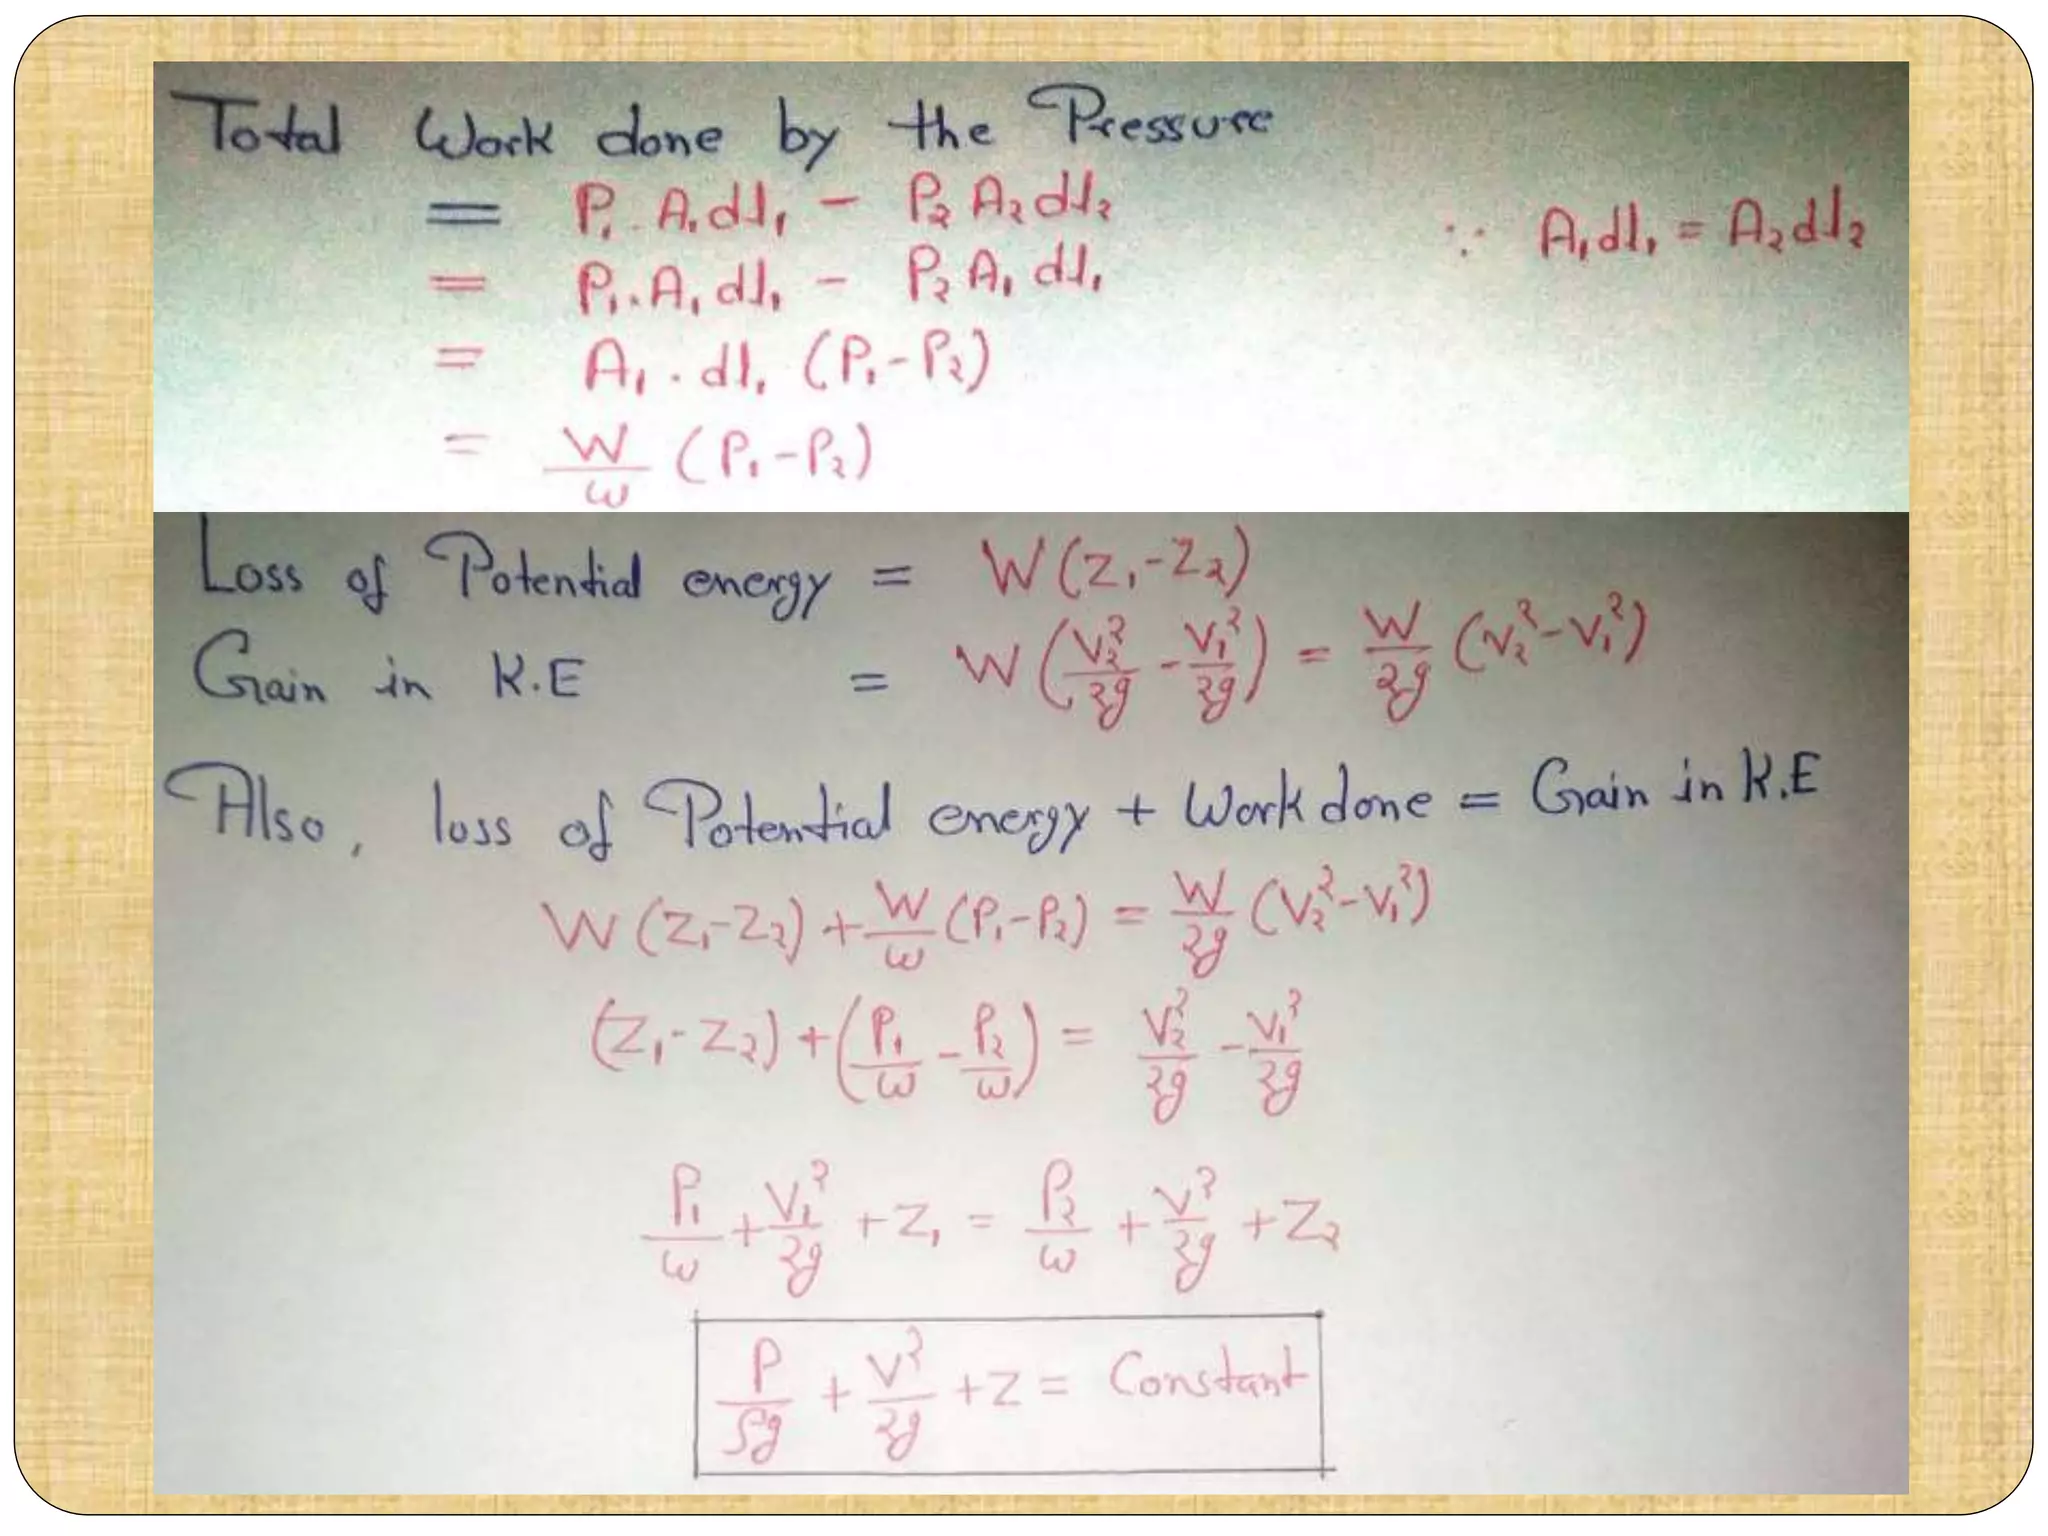 Total Work done by the Pressure
= P₁.A₁dl₁ - P₂A₂dl₂ ∵ A₁dl₁ = A₂dl₂
= P₁.A₁dl₁ - P₂A₁dl₁
= A₁.dl₁ (P₁-P₂)
= W/ω (P₁-P₂)
Loss of Potential energy = W(Z₁-Z₂)
Gain in K.E = W(V₂²/2g - V₁²/2g) = W/2g (V₂²-V₁²)
Also, loss of Potential energy + Work done = Gain in K.E
W(Z₁-Z₂) + W/ω (P₁-P₂) = W/2g (V₂²-V₁²)
(Z₁-Z₂) + (P₁/ω - P₂/ω) = V₂²/2g - V₁²/2g
P₁/ω + V₁²/2g + Z₁ = P₂/ω + V²/2g + Z₂
P/ρg + V²/2g + Z = Constant